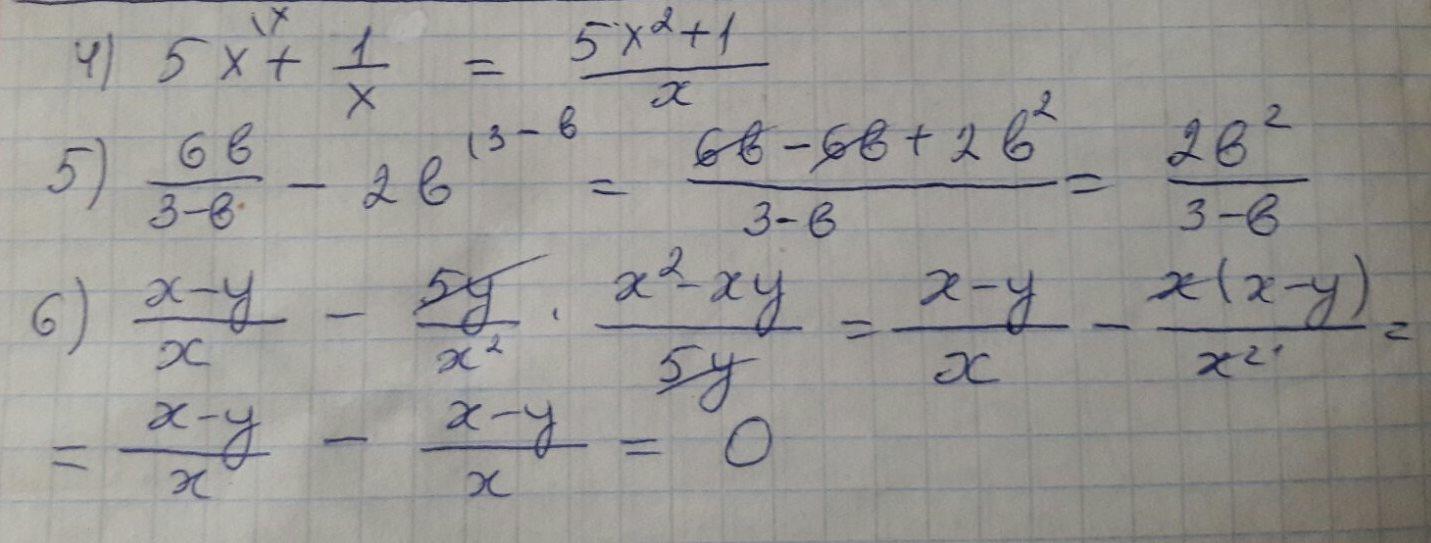 4) 5x^{\x} + \frac{1}{x} = \frac{5x^2+1}{x}
5) \frac{6в}{3-в} - 2в^{\3-в} = \frac{6в-6в+2в^2}{3-в} = \frac{2в^2}{3-в}
6) \frac{x-y}{x} - \frac{5y}{x^2} · \frac{x^2-xy}{5y} = \frac{x-y}{x} - \frac{x(x-y)}{x^2} =
= \frac{x-y}{x} - \frac{x-y}{x} = 0